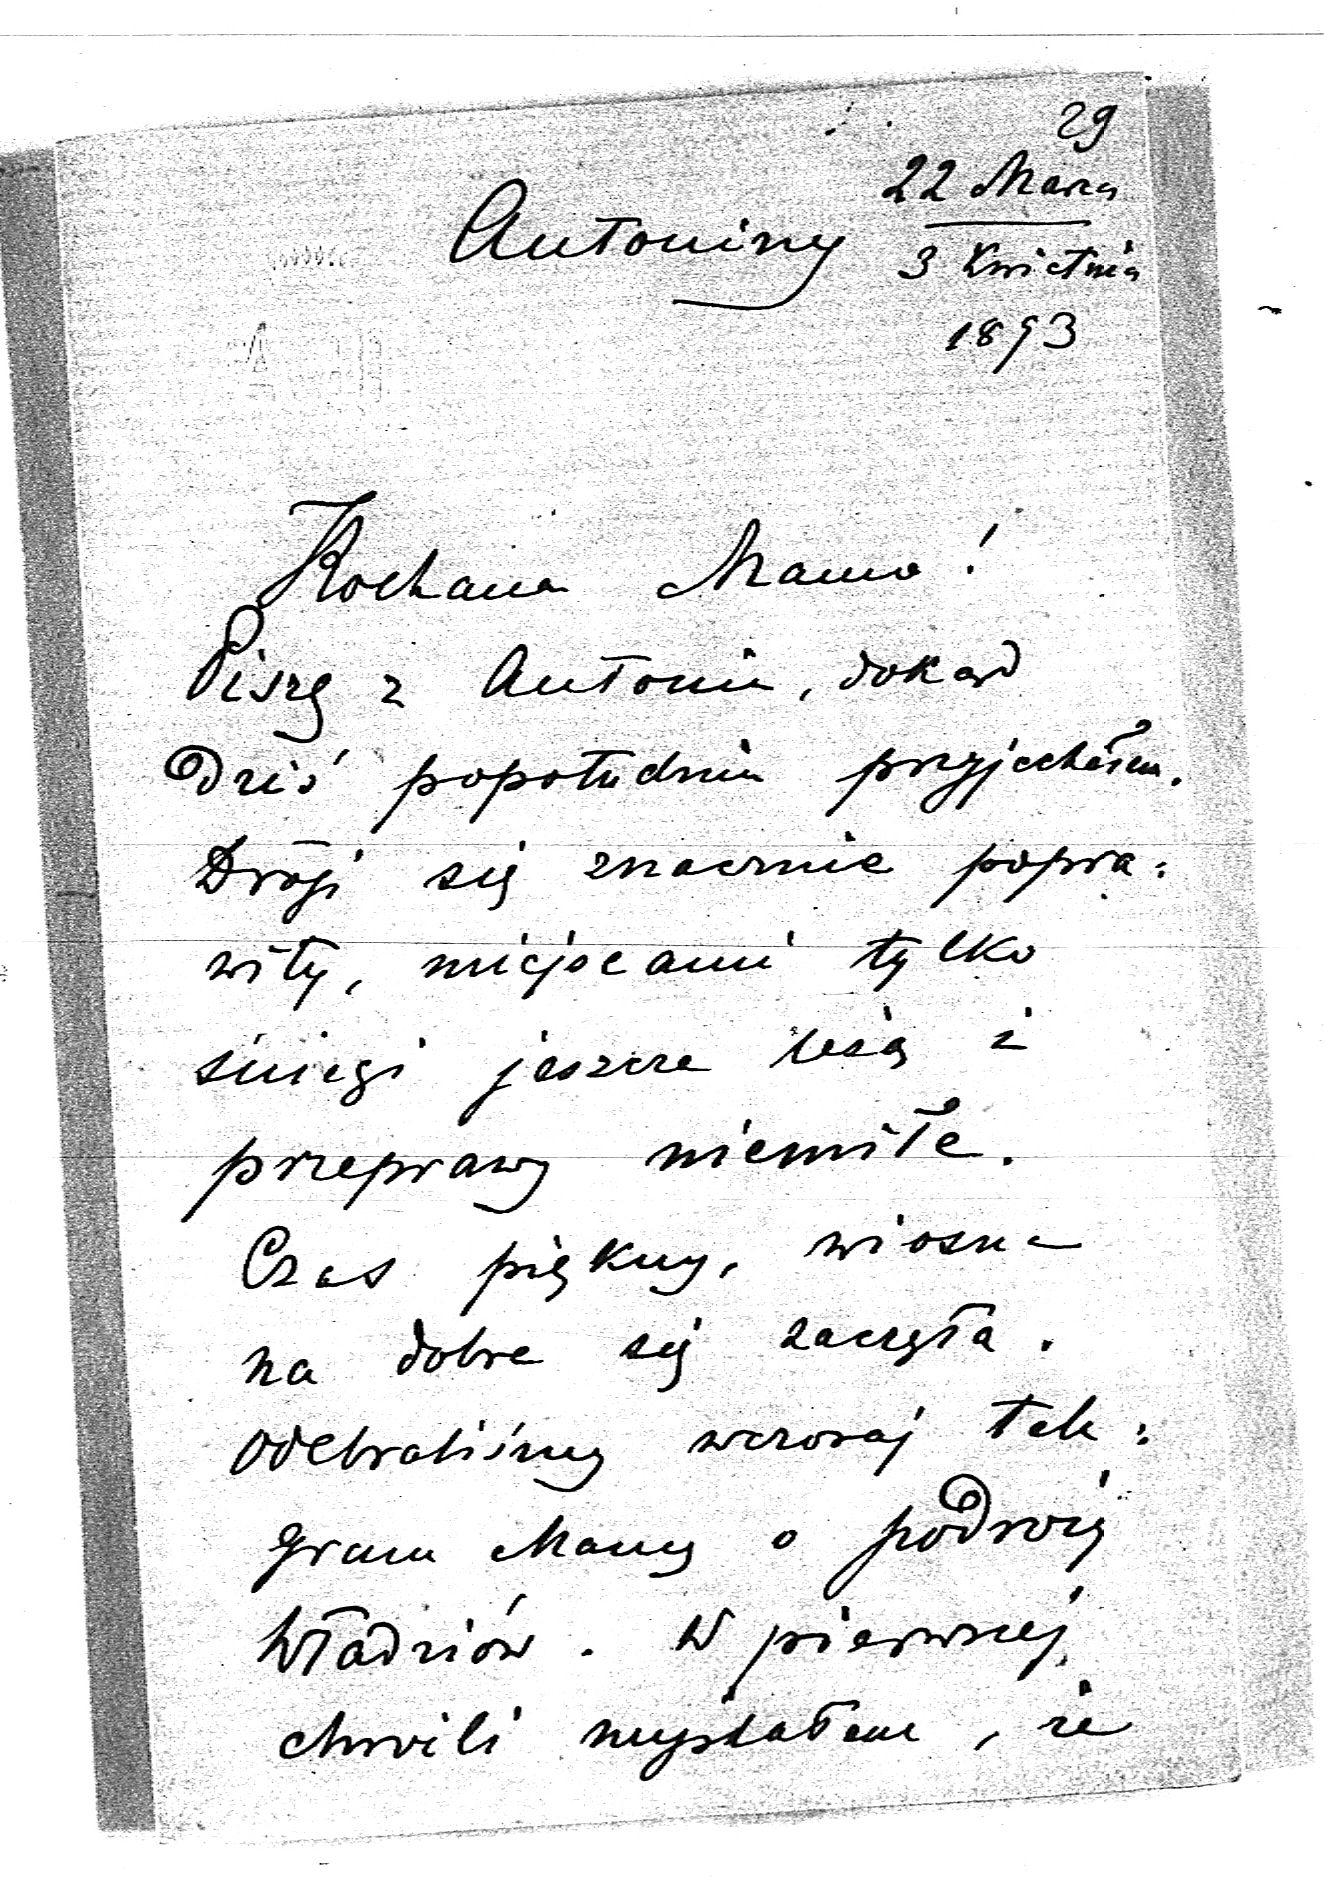 29
Antoniny 22 Marca
3 Kwietnia
1893
Kochana Mamo!
Piszę z Antonin, dokąd
dziś popołudniu przyjechałem.
Drogi się znacznie popra:
wiły, miejscami tylko
śniegi jeszcze leżą i
przeprawy niemiłe.
Czas piękny, wiosna
na dobre się zaczęła.
Odebraliśmy wczoraj tele:
gram Mamy o podroży
Władziów. W pierwszej
chwili myślałem, że